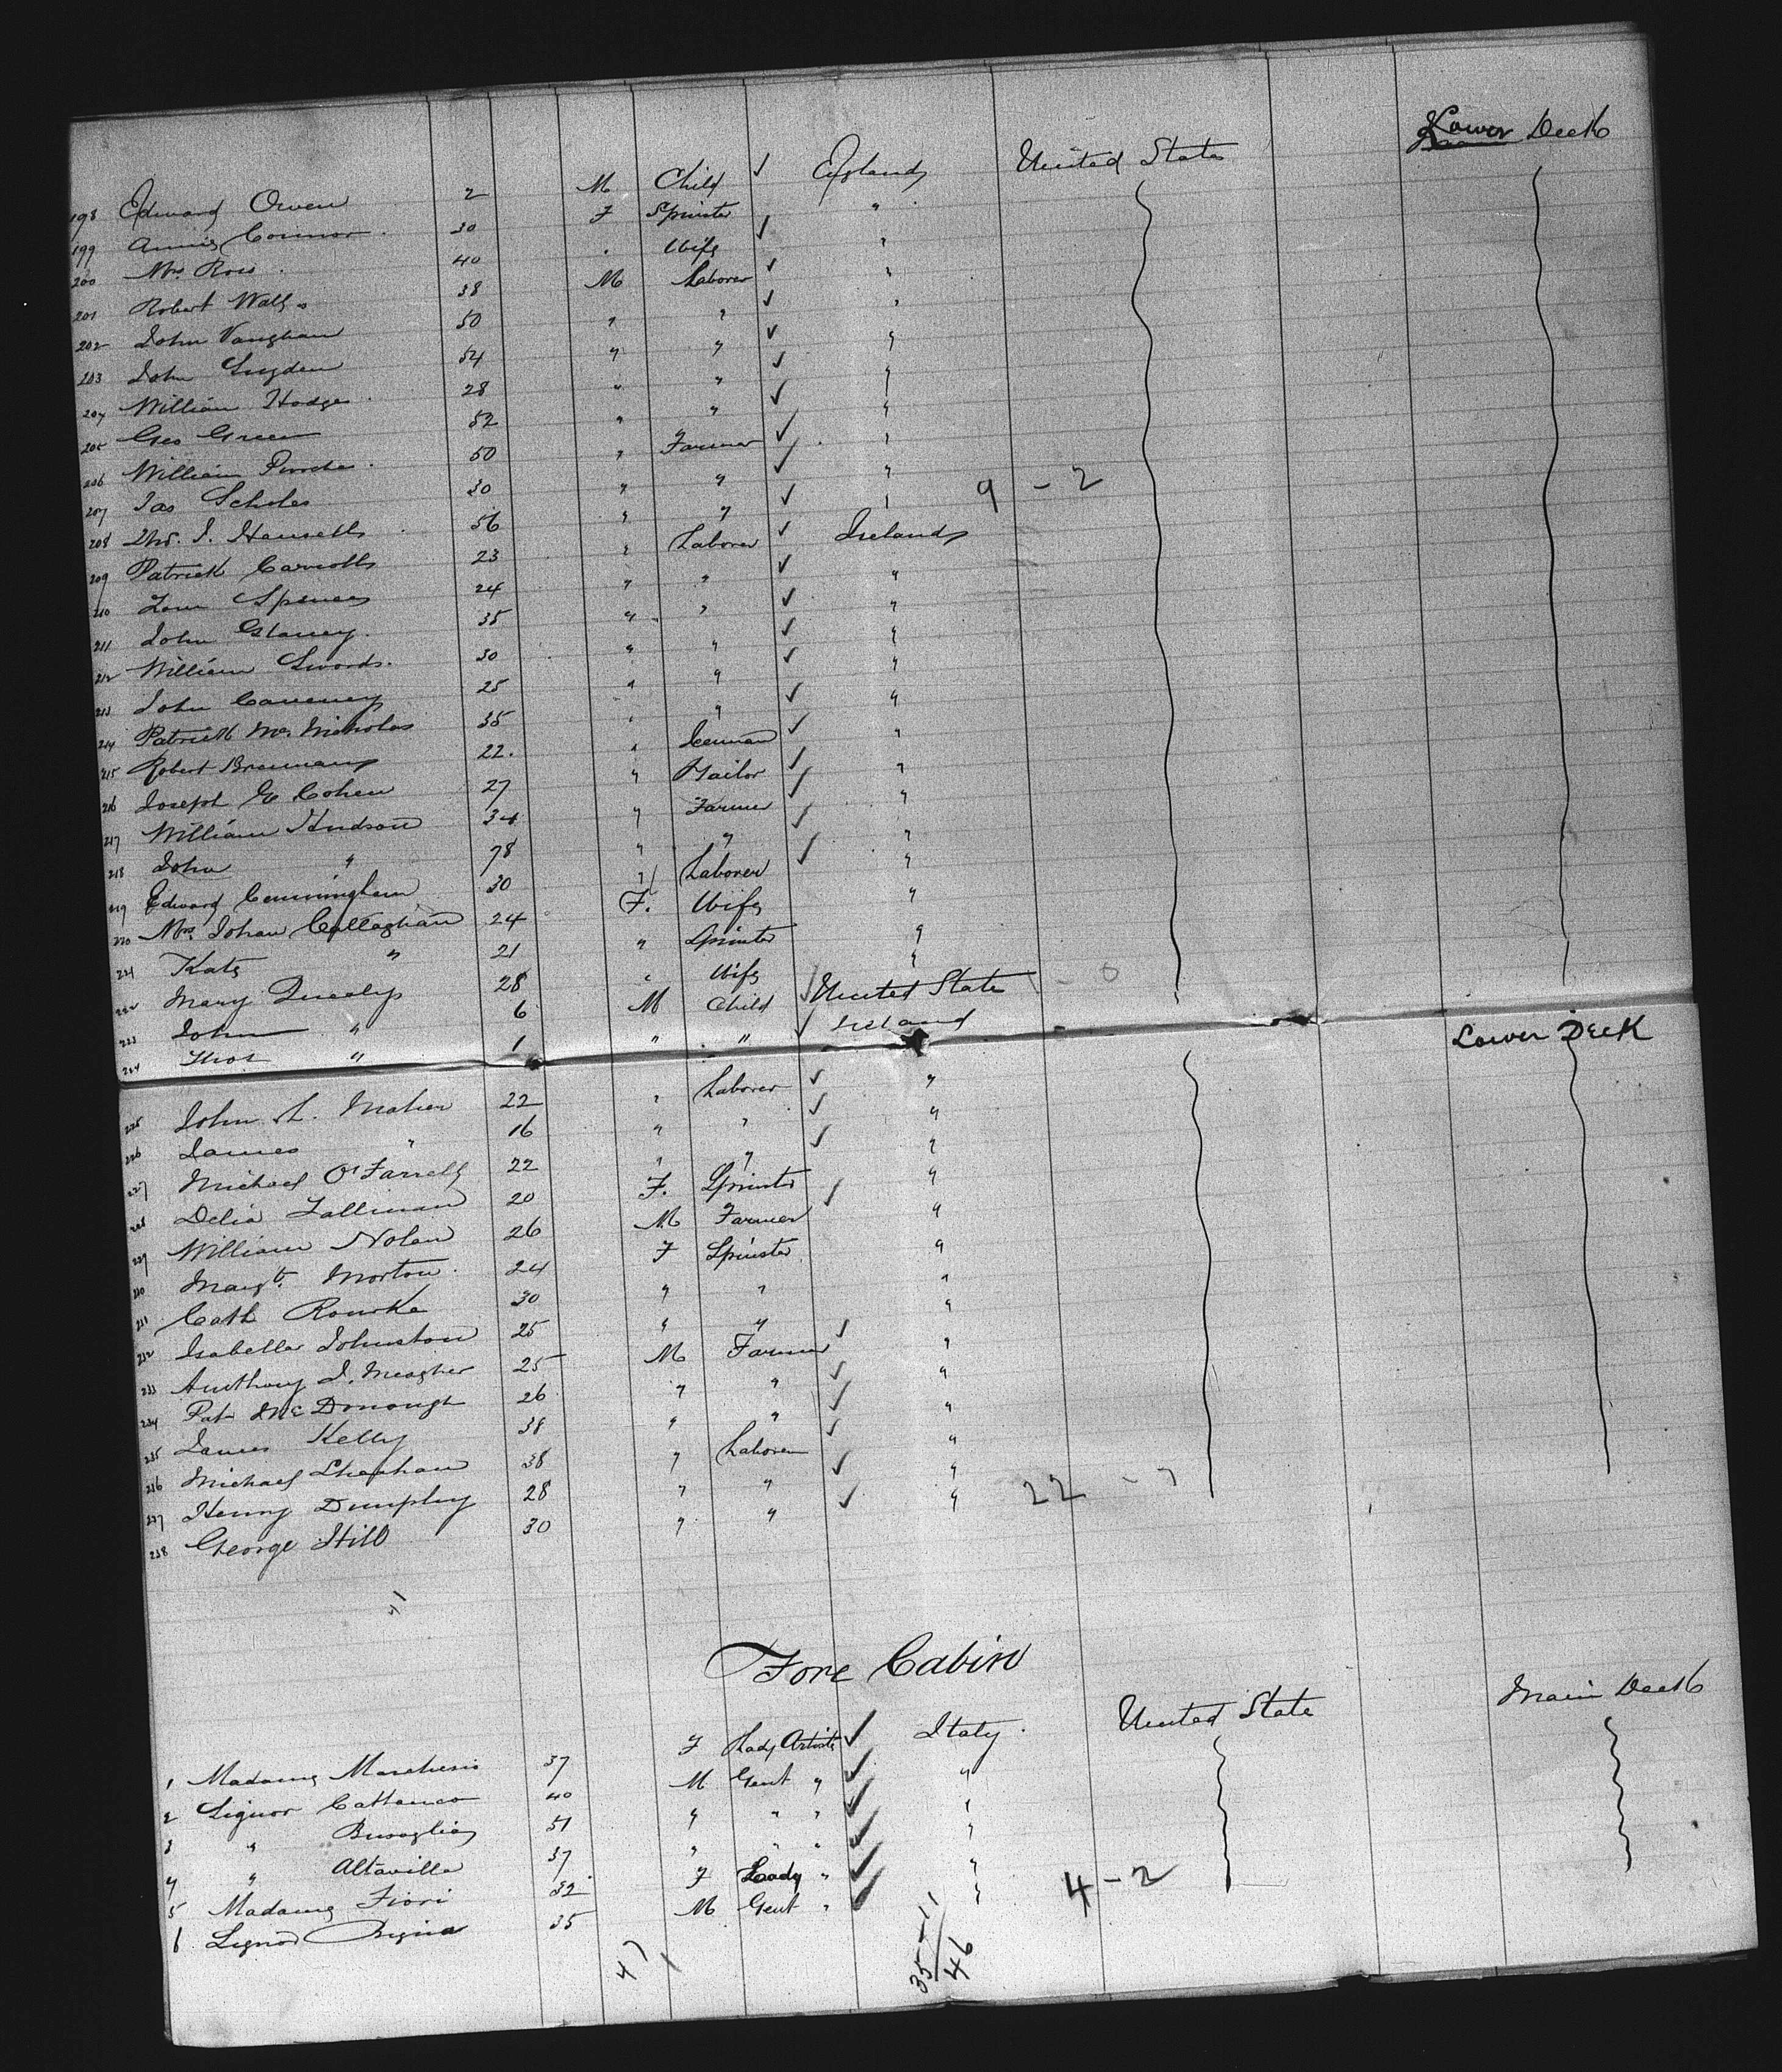 Lower Deck
198 Edward Owen 2 M Child ✓ England United States
199 Annie Connor 30 F Spinster "
200 Mrs Ross 40 " Wife ✓ "
201 Robert Walls 38 M Laborer ✓ "
202 John Vaughan 50 " " ✓ "
203 John Sugden 54 " " ✓ "
204 William Hodge 28 " " ✓ "
205 Geo Green 52 " " ✓ "
206 William 50 " Farmer ✓ "
207 Jas Scholes 30 " " ✓ " 9 - 2
208 J. 56 " " ✓ "
209 Patrick Carroll 23 " Laborer ✓ Ireland
210 Tom Spence 24 " " ✓ "
211 John 35 " " ✓ "
212 William Swords 30 " " ✓ "
213 John Caveney 25 " " ✓ "
214 Patrick Mc Nicholas 35 " " ✓ "
215 Robert Brennan 22 " Iceman ✓ "
216 Joseph E Cohen 27 " Tailor ✓ "
217 William Hudson 34 " Farmer ✓ "
218 John " 78 " " ✓ "
219 Edward Cunningham 30 " Laborer ✓ "
220 Mrs Johan Callaghan 24 F. Wife "
221 Kate " 21 " Spinster "
222 Mary Quealy 28 " Wife "
223 John " 6 M Child ✓ United State
224 Thos " 1 " " ✓ Ireland
Lower Deck
225 John L. Maher 22 " Laborer ✓ "
226 James " 16 " " ✓ "
227 Michael O'Farrell 22 " " ✓ "
228 Delia Talliman 20 F. Spinster "
229 William Nolan 26 M Farmer ✓ "
230 Margt. Morton 24 F Spinster "
231 Cath Rourke 30 " " "
232 Isabella Johnston 25 " " "
233 Anthony J. Meagher 25 M Farmer ✓ "
234 Pat McDonough 26 " " ✓ "
235 James Kelly 38 " " ✓ "
236 Michael Sheahan 38 " Laborer ✓ "
237 Henry Dumphy 28 " " ✓ "
238 George Hill 30 " " ✓ " 22 - 7
Fore Cabin
Main Deck
1 Madame Marchesio 37 F Lady Artiste ✓ Italy United State
2 Signor Cattaneo 40 M Gent " ✓ "
3 " Busoglia 51 " " " ✓ "
4 " Altavilla 37 " " " ✓ "
5 Madame Fiori 32 F Lady " ✓ "
6 Signor 35 M Gent " ✓ " 4 - 2
47
35-11
46